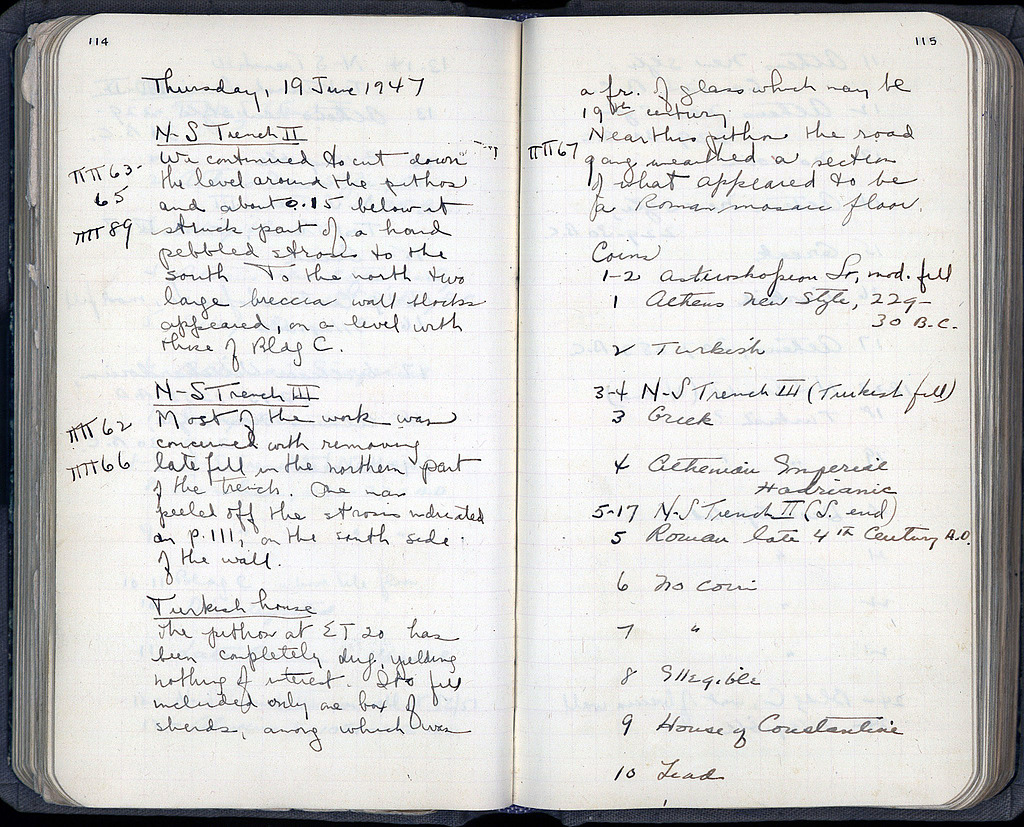 114
Thursday, 19 June 1947
N-S Trench II
We continued to cut down
ΠΠ 63-
the level around the pithos
65
and about 0.15 below it
ΠΠ 89
struck part of a hard
pebbled strosis to the
south. To the north two
large breccia wall blocks
appeared, on a level with
those of Bldg C.
N-S Trench III
ΠΠ 62
Most of the work was
concerned with removing
ΠΠ 66
late fill in the northern part
of the trench. One man
peeled off the strosis indicated
on p. 111, on the south side
of the wall.
Turkish house
The pithos at ΣΤ 20 has
been completely dug, yielding
nothing of interest. Its fill
included only one box of
sherds, among which was
115
a fr. of glass which may be
19th century.
Near this pithos the road
ΠΠ 67
gang unearthed a section
of what appeared to be
a Roman mosaic floor.
Coins
1-2 mod. fill
1 Athens New Style, 229-
30 B.C.
2 Turkish
3-4 N-S Trench III (Turkish fill)
3 Greek
4 Athenian Imperial
Hadrianic
5-17 N-S Trench II (S. end)
5 Roman late 4th Century A.D.
6 No coin
7 "
8 Illegible
9 House of Constantine
10 Lead